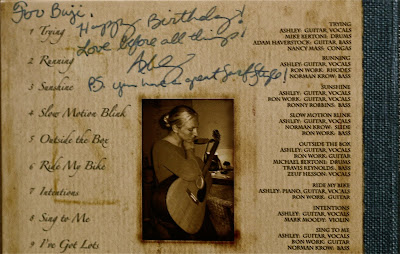 For Buji.
Happy Birthday!
Love before all things!
Ashley
P.S. you have a great surf style!
1 Trying
2 Running
3 Sunshine
4 Slow Motion Blink
5 Outside the Box
6 Ride My Bike
7 Intentions
8 Sing to Me
9 I've Got Lots
TRYING
ASHLEY: GUITAR, VOCALS
MIKE BERTONI: DRUMS
ADAM HAVERSTOCK: GUITAR, BASS
NANCY MASS: CONGAS
RUNNING
ASHLEY: GUITAR, VOCALS
RON WORK: RHODES
NORMAN KROW: BASS
SUNSHINE
ASHLEY: GUITAR, VOCALS
RON WORK: GUITAR
RONNY ROBBINS: BASS
SLOW MOTION BLINK
ASHLEY: GUITAR, VOCALS
NORMAN KROW: SLIDE
RON WORK: BASS
OUTSIDE THE BOX
ASHLEY: GUITAR, VOCALS
RON WORK: GUITAR
MICHAEL BERTONI: DRUMS
TRAVIS REYNOLDS: BASS
ZEUF HESSON: VOCALS
RIDE MY BIKE
ASHLEY: PIANO, GUITAR, VOCALS
RON WORK: GUITAR
INTENTIONS
ASHLEY: GUITAR, VOCALS
MARK MOODY: VIOLIN
SING TO ME
ASHLEY: GUITAR, VOCALS
RON WORK: GUITAR
NORMAN KROW: BASS